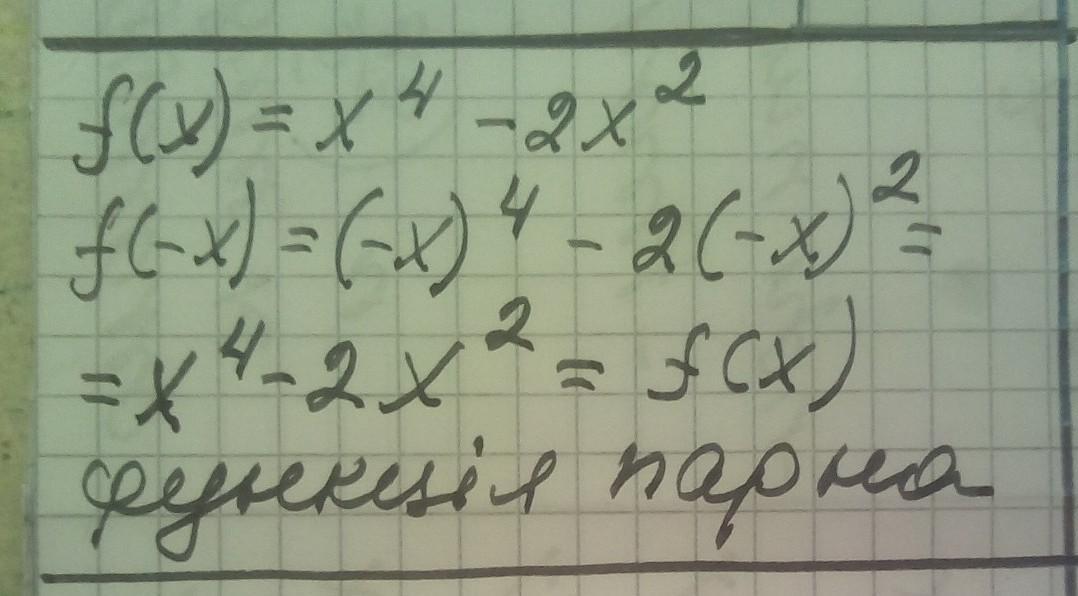 f(x) = x⁴ - 2x²
f(-x) = (-x)⁴ - 2(-x)² =
= x⁴ - 2x² = f(x)
функція парна